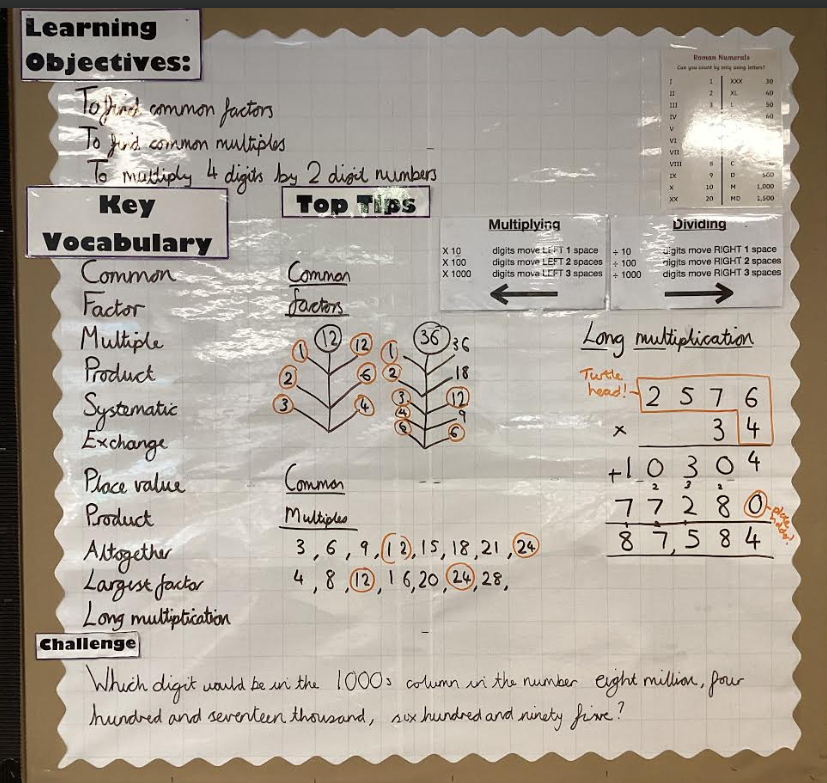 Learning
Objectives:
To find common factors
To find common multiples
To multiply 4 digits by 2 digit numbers
Roman Numerals
Can you count by only using letters?
I 1 XXX 30
II 2 XL 40
III 3 L 50
IV 60
V
VI
VII
VIII 8 C
IX 9 D 500
X 10 M 1,000
XX 20 MD 1,500
Key
Vocabulary
Common
Factor
Multiple
Product
Systematic
Exchange
Place value
Product
Altogether
Largest factor
Long multiplication
Top Tips
Common
factors
12
1 12
2 6
3 4
36
1 36
2 18
3 12
4 9
6 6
Common
Multiples
3, 6, 9, 12, 15, 18, 21, 24
4, 8, 12, 16, 20, 24, 28,
Multiplying
X 10 digits move LEFT 1 space
X 100 digits move LEFT 2 spaces
X 1000 digits move LEFT 3 spaces
Dividing
÷ 10 digits move RIGHT 1 space
÷ 100 digits move RIGHT 2 spaces
÷ 1000 digits move RIGHT 3 spaces
Long multiplication
Turtle
head!
2 5 7 6
x 3 4
+1 0 3 0 4
2 3 2
7 7 2 8 0
place
holder!
8 7,5 8 4
Challenge
Which digit would be in the 1000s column in the number eight million, four
hundred and seventeen thousand, six hundred and ninety five?